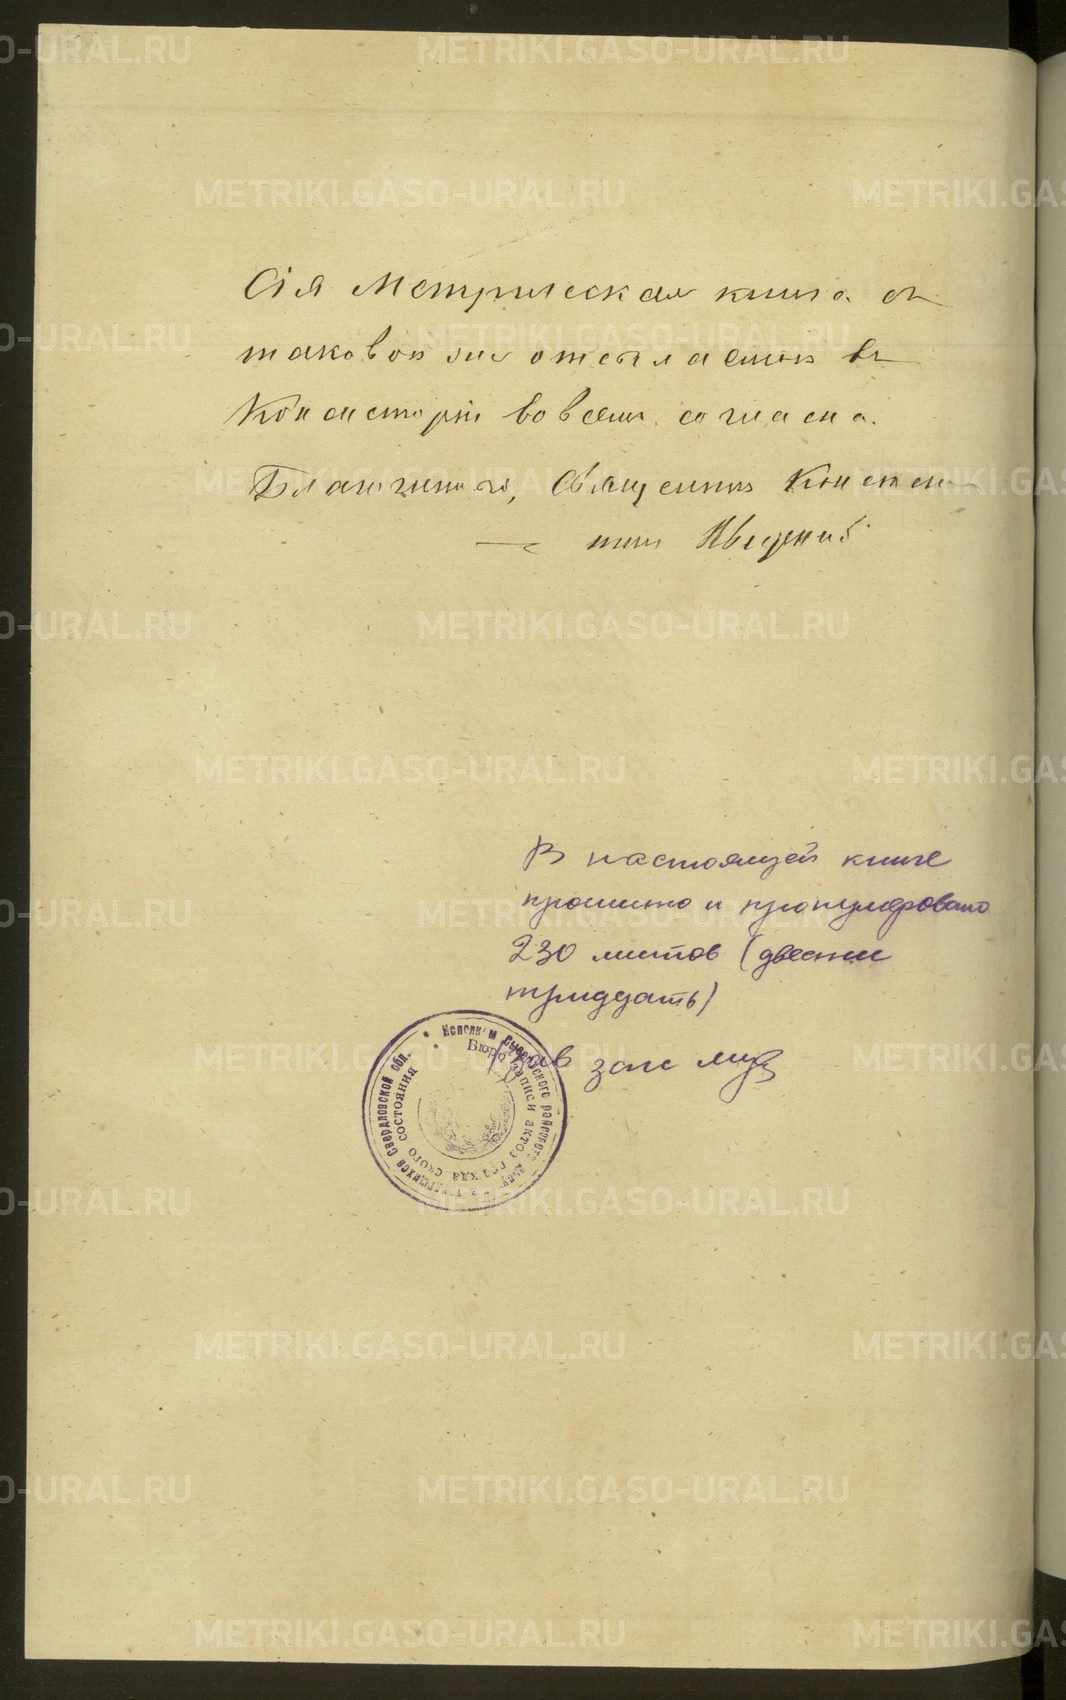 Сія Метрическая книга съ
таковою же отсылаемою въ
Консисторію во всемъ согласна.
Благочинный, Священникъ Констан-
тинъ
В настоящей книге
прошито и пронумеровано
230 листов (двести
тридцать)
Зав загс
Бюро записи актов гражданского состояния
Свердловской обл.
METRIKI.GASO-URAL.RU